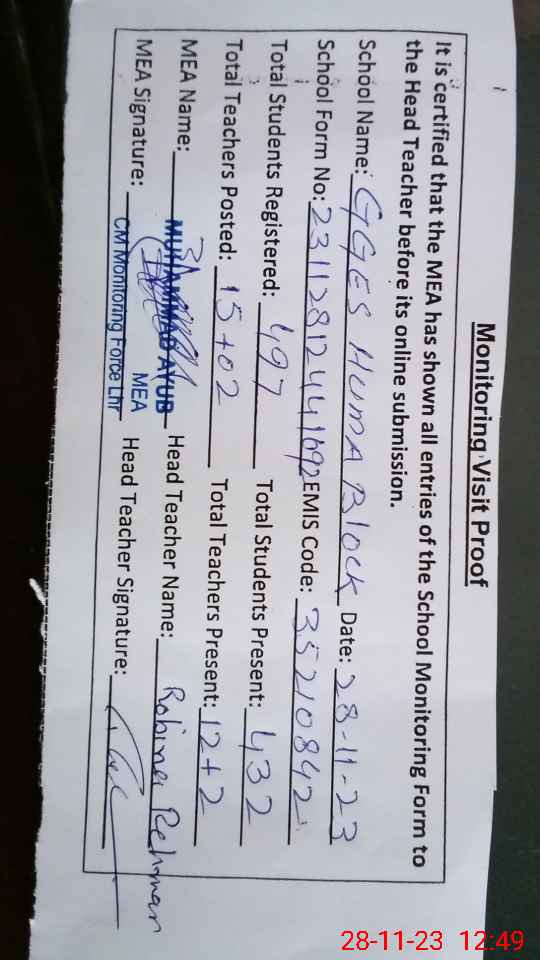 Monitoring Visit Proof
It is certified that the MEA has shown all entries of the School Monitoring Form to
the Head Teacher before its online submission.
School Name: GGES HUMA Block Date: 28-11-23
School Form No: 23112812441692 EMIS Code: 35210842
Total Students Registered: 497 Total Students Present: 432
Total Teachers Posted: 15+02 Total Teachers Present: 12+2
MEA Name: MUHAMMAD AYUB Head Teacher Name: Robina Rehman
MEA
MEA Signature: CM Monitoring Force Lhr Head Teacher Signature:
28-11-23 12:49